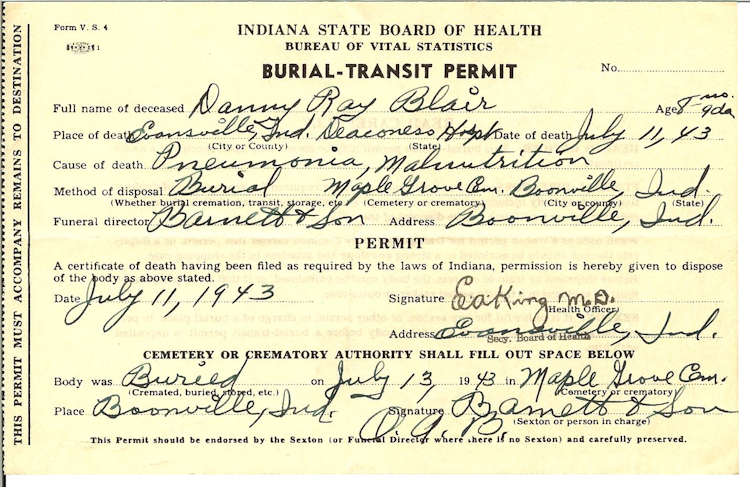 Form V. S. 4
INDIANA STATE BOARD OF HEALTH
BUREAU OF VITAL STATISTICS
BURIAL-TRANSIT PERMIT
No.
Full name of deceased Danny Ray Blair Age 8 mo. 9 da
Place of death Evansville, Ind Deaconess Hosp Date of death July 11, 43
(City or County) (State)
Cause of death Pneumonia, Malnutrition
Method of disposal Burial Maple Grove Cem. Boonville, Ind.
(Whether burial cremation, transit, storage, etc.) (Cemetery or crematory) (City or county) (State)
Funeral director Barnett & Son Address Boonville, Ind.
PERMIT
A certificate of death having been filed as required by the laws of Indiana, permission is hereby given to dispose
of the body as above stated.
Date July 11, 1943 Signature EaKing M.D.
Health Officer
Address Evansville, Ind.
Secy. Board of Health
CEMETERY OR CREMATORY AUTHORITY SHALL FILL OUT SPACE BELOW
Body was Buried on July 13, 1943 in Maple Grove Cem.
(Cremated, buried, stored, etc.) (Cemetery or crematory)
Place Boonville, Ind. Signature Barnett & Son
(Sexton or person in charge)
O. A. B.
This Permit should be endorsed by the Sexton (or Funeral Director where there is no Sexton) and carefully preserved.
THIS PERMIT MUST ACCOMPANY REMAINS TO DESTINATION